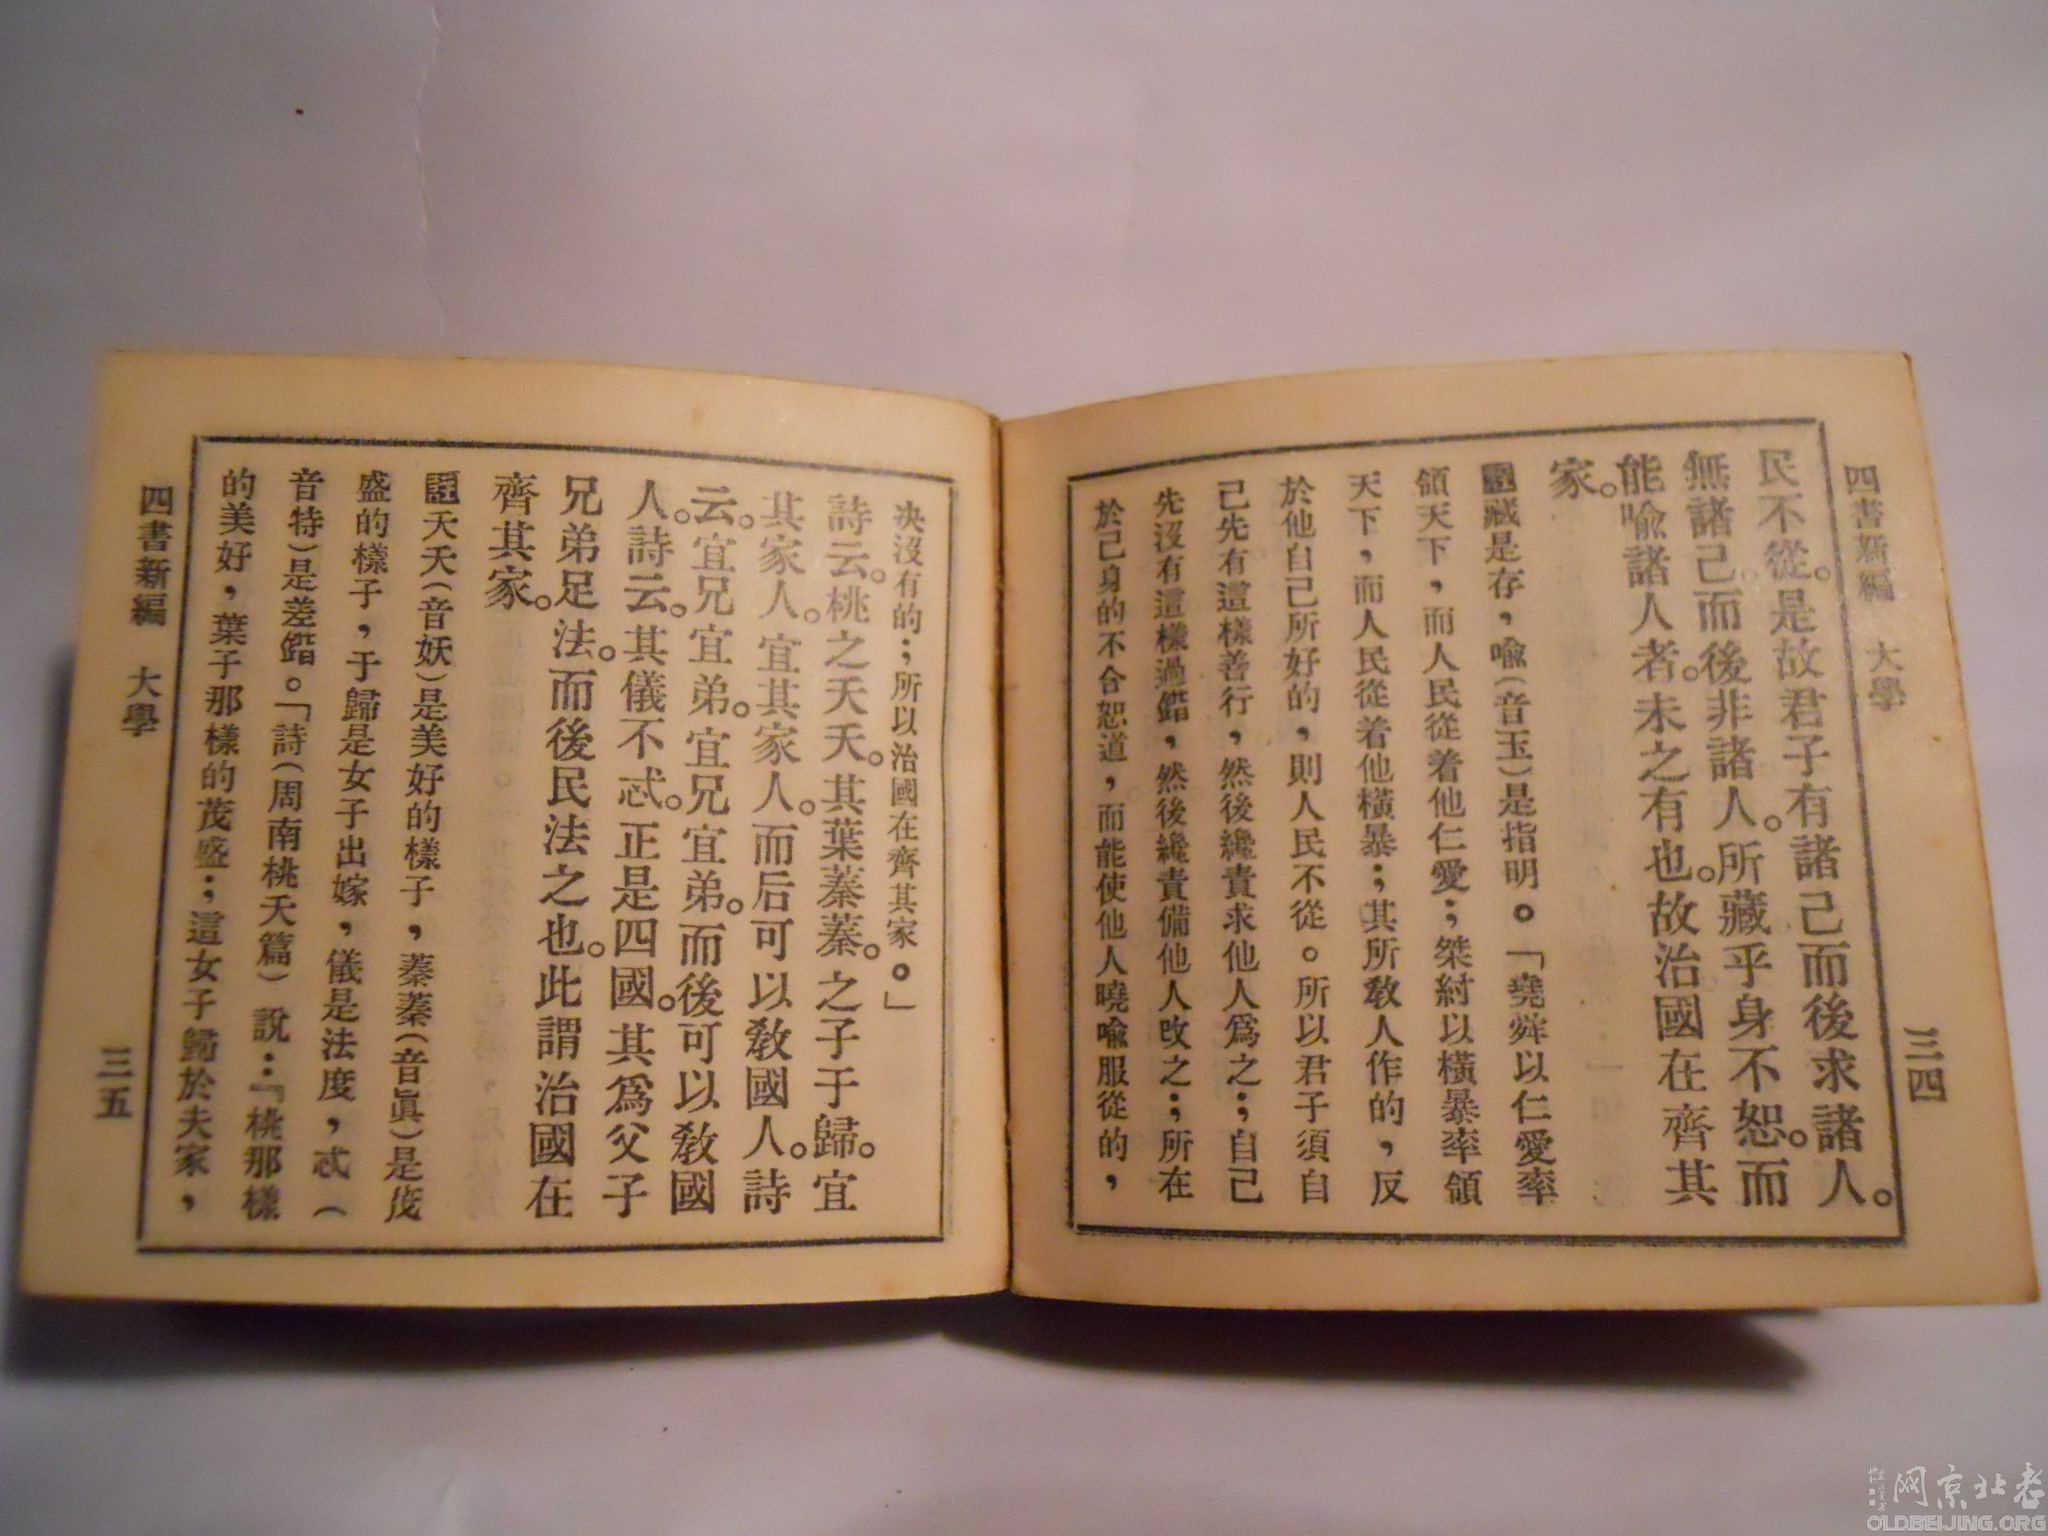 四書新編 大學
三四
民不從。是故君子有諸己而後求諸人。
無諸己。而後非諸人。所藏乎身不恕。而
能喻諸人者。未之有也。故治國在齊其
家。
註藏是存，喻（音玉）是指明。「堯舜以仁愛率
領天下，而人民從着他仁愛；桀紂以橫暴率領
天下，而人民從着他橫暴；其所敎人作的，反
於他自己所好的，則人民不從。所以君子須自
己先有這樣善行，然後纔責求他人爲之；自己
先沒有這樣過錯，然後纔責備他人改之；所在
於己身的不合恕道，而能使他人曉喻服從的，
決沒有的；所以治國在齊其家。」
詩云。桃之夭夭。其葉蓁蓁。之子于歸。宜
其家人。宜其家人。而后可以敎國人。詩
云。宜兄宜弟。宜兄宜弟。而後可以敎國
人。詩云。其儀不忒。正是四國。其爲父子
兄弟足法。而後民法之也。此謂治國在
齊其家。
註夭夭（音妖）是美好的樣子，蓁蓁（音眞）是茂
盛的樣子，于歸是女子出嫁，儀是法度，忒（
音特）是差錯。「詩（周南桃夭篇）說：「桃那樣
的美好，葉子那樣的茂盛；這女子歸於夫家，
四書新編 大學
三五
老北京网
OLDBEIJING.ORG